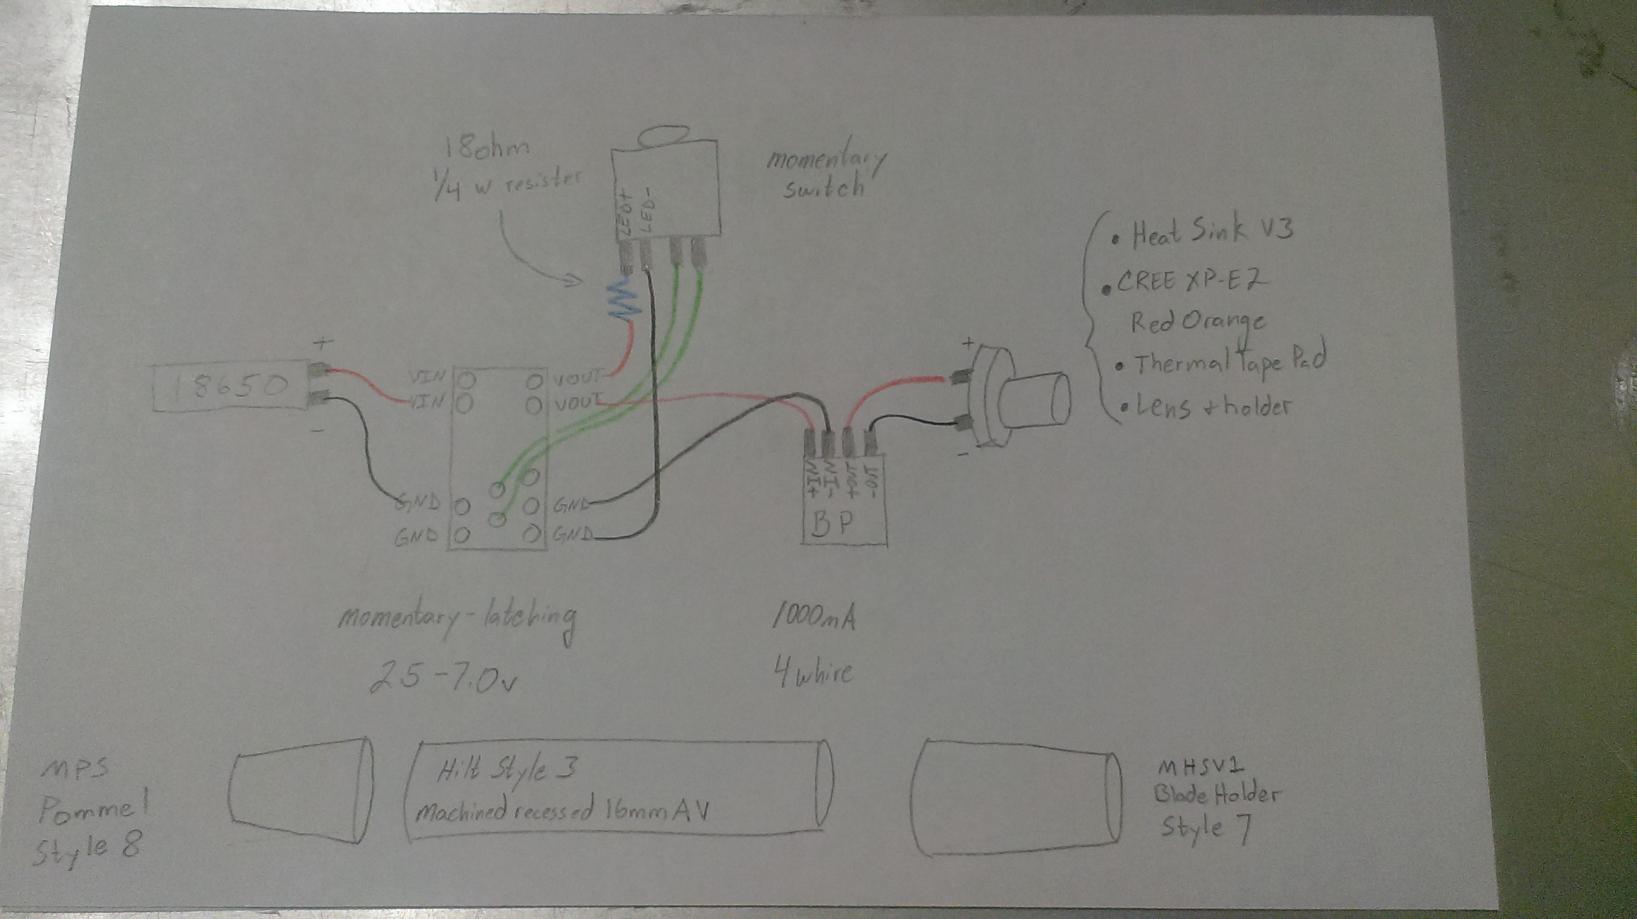 18ohm
1/4 w resister
momentary
switch
LED+
LED-
• Heat Sink V3
• CREE XP-E2
Red Orange
• Thermal tape Pad
• Lens + holder
+
-
18650
VIN
VIN
VOUT
VOUT
GND
GND
GND
GND
+
-
+IN
-IN
+OUT
-OUT
BP
momentary-latching
2.5-7.0v
1000mA
4 whire
MPS
Pommel
Style 8
Hilt Style 3
Machined recessed 16mm AV
MHSV1
Blade Holder
Style 7